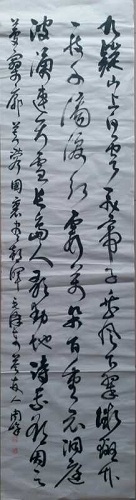 九嶷山上白云飞帝子乘风下翠微斑竹
一枝千滴泪红霞万朵百重衣洞庭
波涌连天雪长岛人歌动地诗我欲因之
梦寥廓芙蓉国里尽朝晖